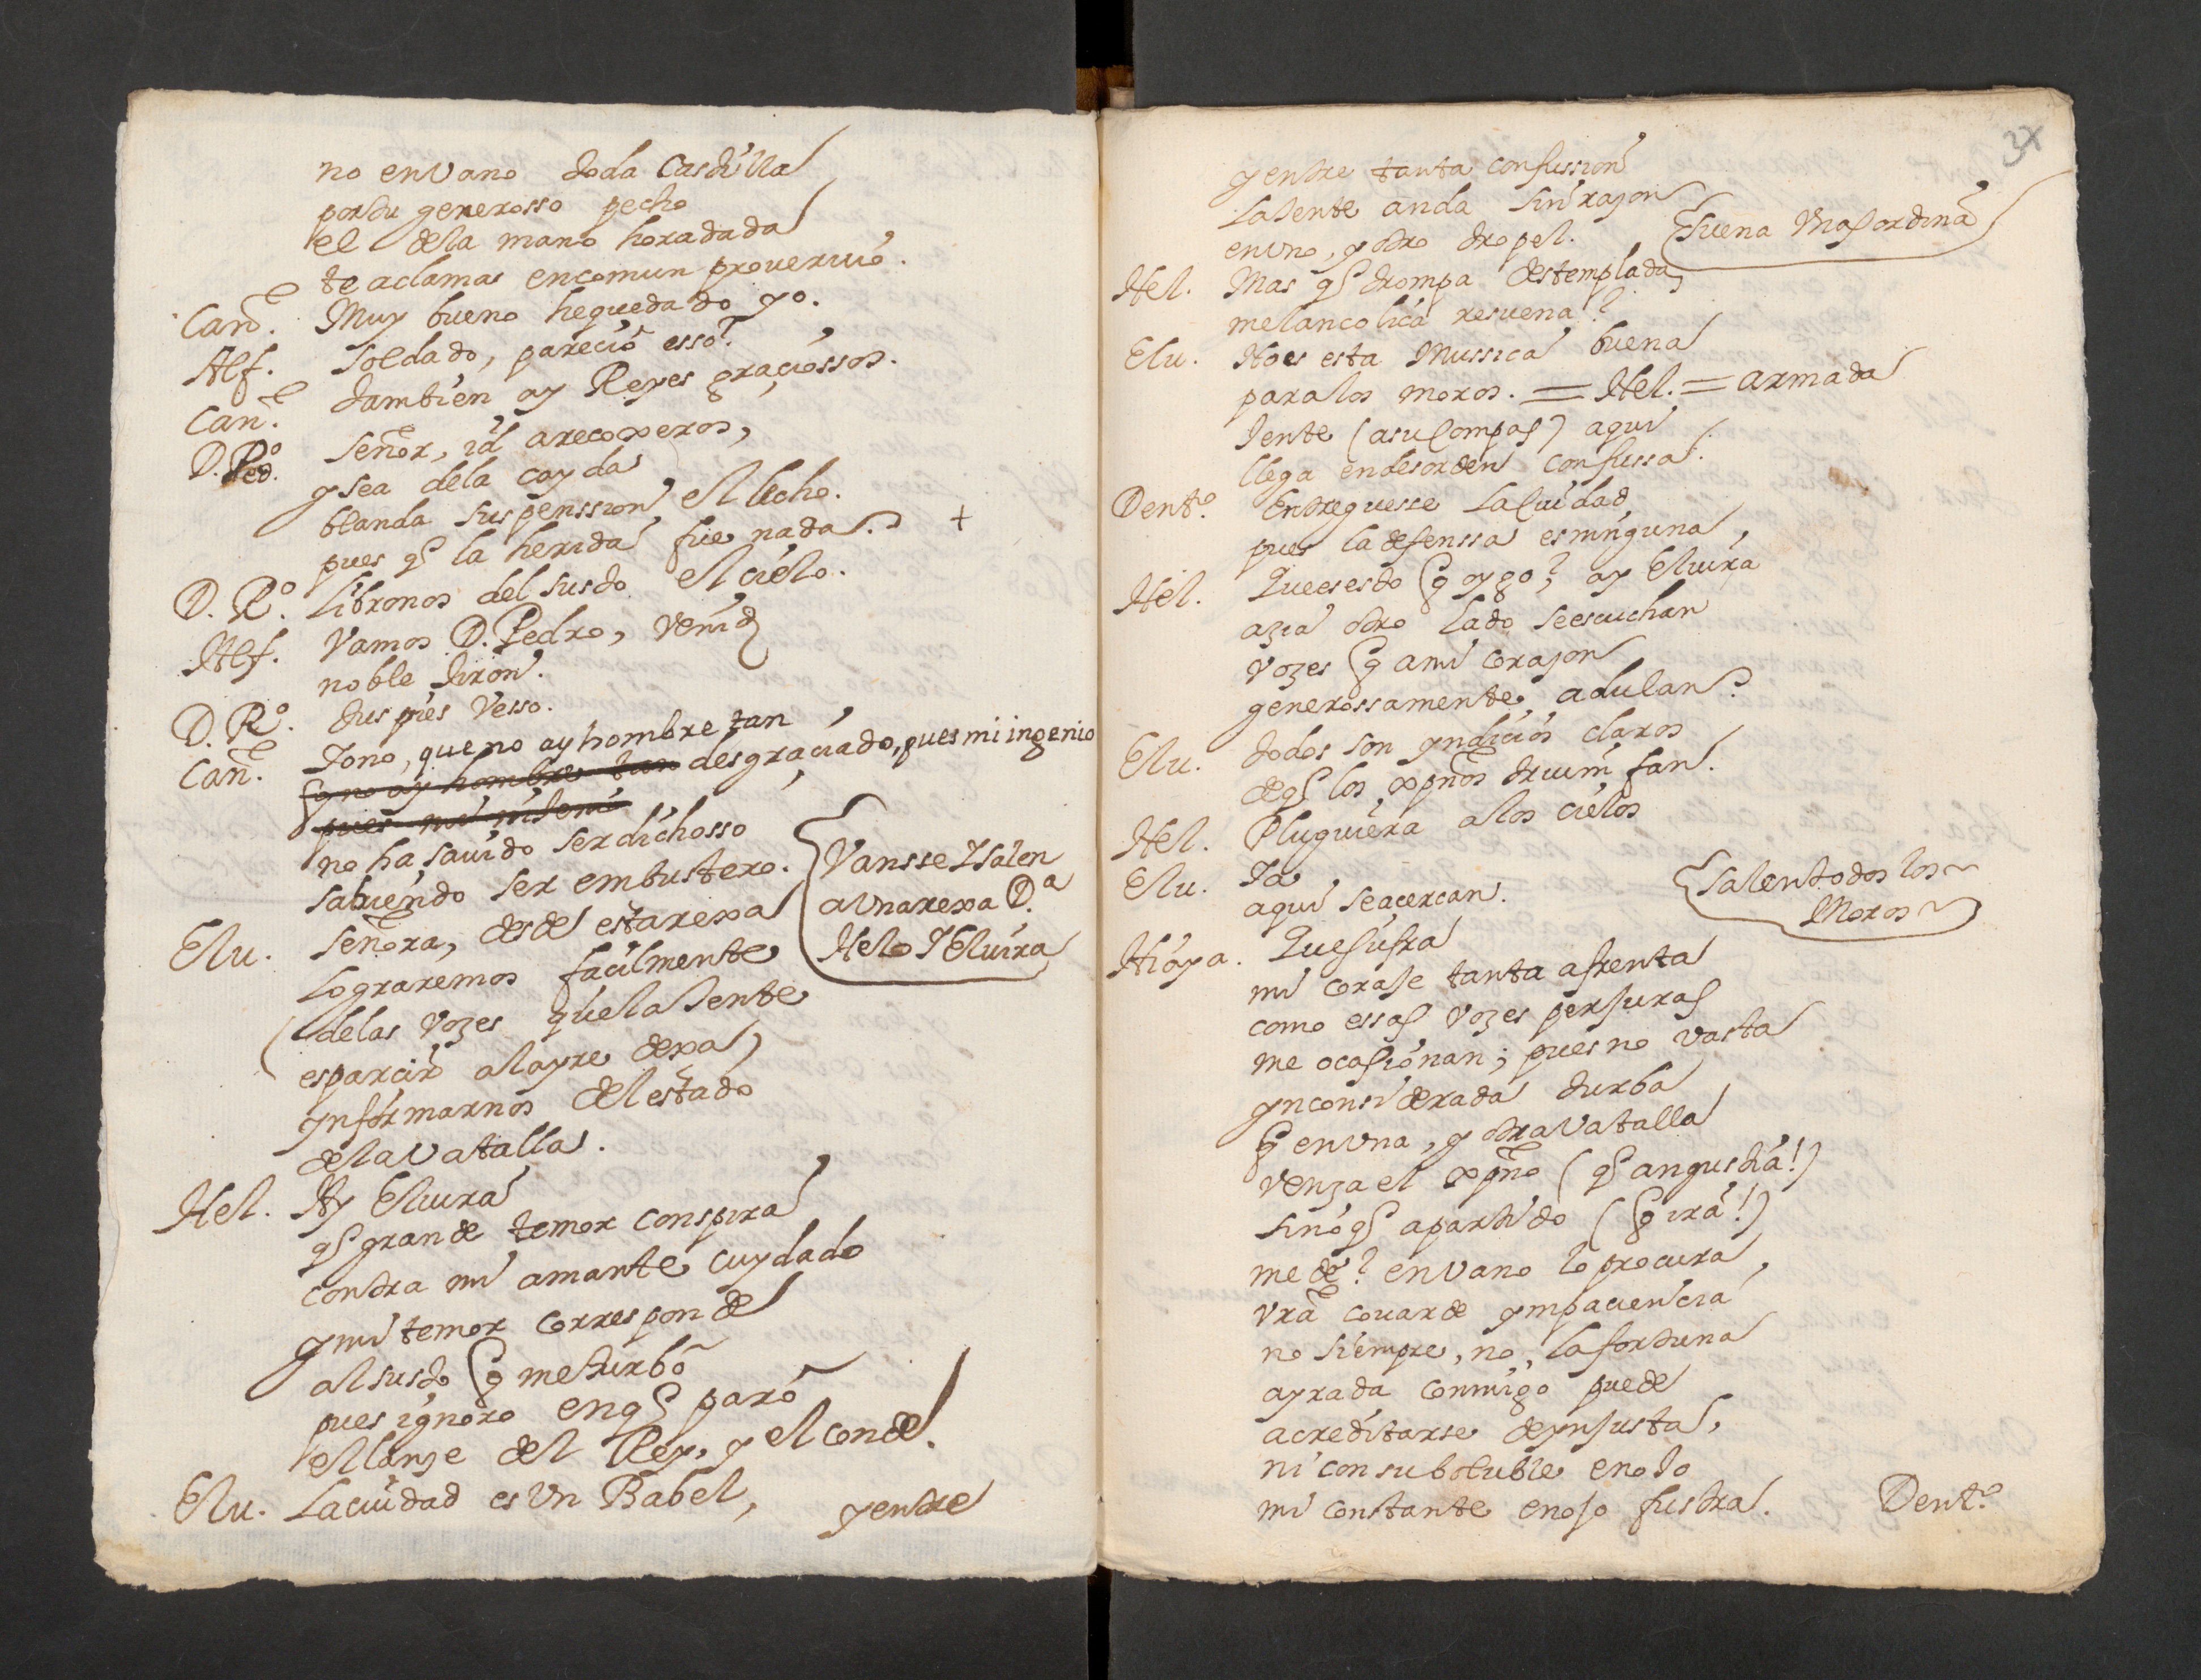 no en vano toda Castilla
por tu generosso pecho
el de la mano horadada
te aclamas en comun proveruio.
Can.ᵉ Muy bueno he quedado yo.
Alf. Soldado, pareciò esso?
Can.ᵉ tambien ay Reyes graciossos.
D. Pedº. Señor, id a recoxeros,
y sea de la cayda
blanda suspenssion el lecho.
pues q̃ la herida fue nada. +
D. Rº. libronos del susto el cielo.
Alf. Vamos D. Pedro, venid
noble Jiron.
D. Rº. tus pies vesso.
Can.ᵉ Jono, que no ay hombre tan
q̃ no ay hombre tan desgraciado, pues mi ingenio
pues mi inJenio
no ha sauido ser dichosso
sabiendo ser embustero.
Vansse Y salen
a vna rexa D.ª
Hel.ᵃ Y Eluira
Elu. Señora, desde esta rexa
lograremos facilmente
(de las vozes que la Jente
esparcir al ayre dexa)
ynformarnos del estado
de la vatalla.
Hel. Ay Eluira
q̃ grande temor conspira
contra mi amante cuydado
y mi temor corresponde
al susto q̃ me turbò
pues ignoro en q̃ parò
el lanze del Rey, y el conde.
Elu. La ciudad es vn Babel,
y entre
37
y entre tanta confussion
la Jente anda sin razon
en vno, y otro tropel.
Suena vna sordina
Hel. Mas q̃ trompa destemplada,
melancolica resuena?
Elu. No es esta Mussica buena
para los moros. = Hel. = armada
Jente (a su compas) aqui
llega en desorden confussa.
Dentº. Entreguesse la Ciudad,
pues la defenssa es ninguna,
Hel. Que es esto q̃ oygo? ay Eluira
azia otro lado se escuchan
vozes q̃ a mi corazon
generossamente adulan?
Elu. todos son yndicios claros
de q̃ los xpños triumfan.
Hel. Pluguiera a los cielos
Elu. Ya
aqui se acercan.
Salen todos los
Moros
Hiaya. Que sufra
mi coraje tanta afrenta
como essas vozes perjuras
me ocasionan; pues no vasta
ynconsiderada turba
q̃ en vna, y otra vatalla
venza el xpño (q̃ angustia!)
sino q̃ a partido (q̃ ira!)
me dè? en vano lo procura,
vrã couarde ympaciencia
no siempre, no, la fortuna
ayrada conmigo puede
acreditarse de ynjusta,
ni con su boluble enoJo
mi constante enojo frustra.
Dentº.